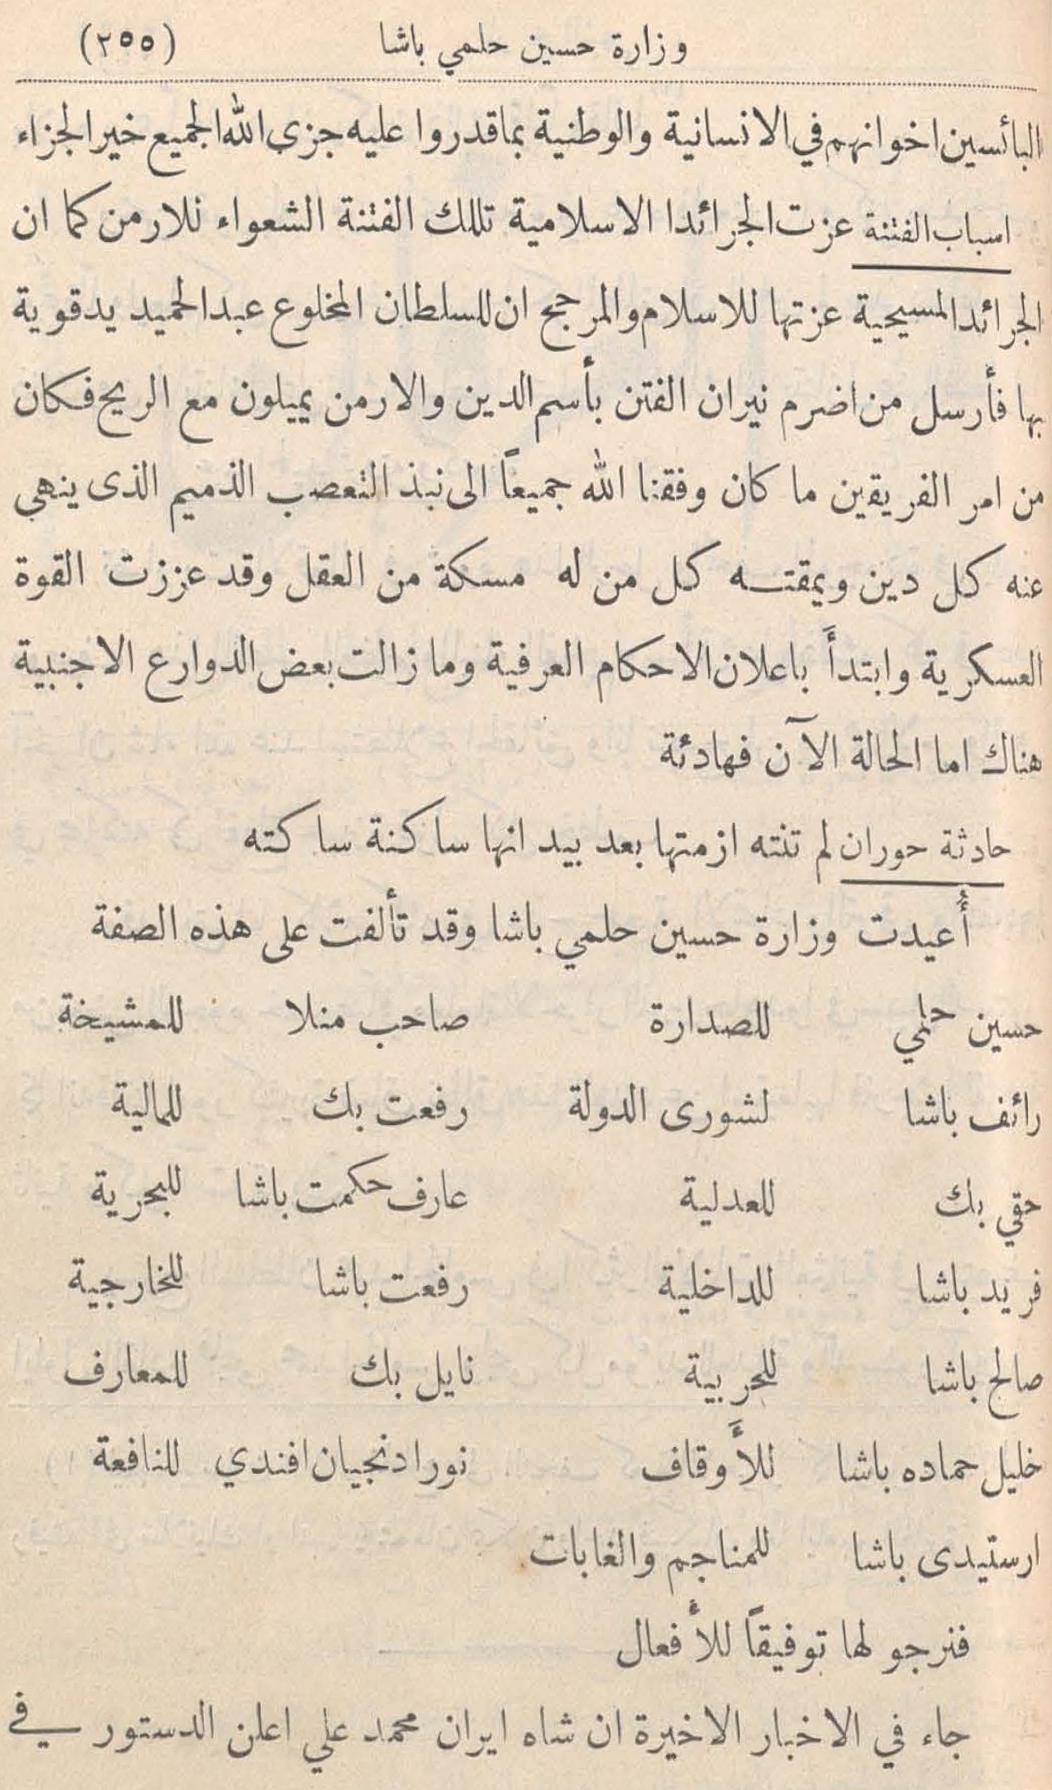 وزارة حسين حلمي باشا (٢٥٥)
البائسين اخوانهم في الانسانية والوطنية بما قدروا عليه جزى الله الجميع خير الجزاء
اسباب الفتنة عزت الجرائدا الاسلامية تللك الفتنة الشعواء للارمن كما ان
الجرائد المسيحية عزتها للاسلام والمرجح ان للسلطان المخلوع عبد الحميد يدقوية
بها فأرسل من اضرم نيران الفتن بأسم الدين والارمن يميلون مع الريح فكان
من امر الفريقين ما كان وفقنا الله جميعاً الى نبذ التعصب الذميم الذى ينهي
عنه كل دين ويمقته كل من له مسكة من العقل وقد عززت القوة
العسكرية وابتدأَ باعلان الاحكام العرفية وما زالت بعض الدوارع الاجنبية
هناك اما الحالة الآن فهادئة
حادثة حوران لم تنته ازمتها بعد بيد انها ساكنة ساكته
أُعيدت وزارة حسين حلمي باشا وقد تألفت على هذه الصفة
حسين حلمي للصدارة صاحب منلا للمشيخة
رائف باشا لشورى الدولة رفعت بك للمالية
حقي بك للعدلية عارف حكمت باشا للبحرية
فريد باشا للداخلية رفعت باشا للخارجية
صالح باشا للحربية نايل بك للمعارف
خليل حماده باشا للأَوقاف نورادنجيان افندي للنافعة
ارستيدى باشا للمناجم والغابات
فنرجو لها توفيقاً للأفعال
جاء في الاخبار الاخيرة ان شاه ايران محمد علي اعلن الدستور في